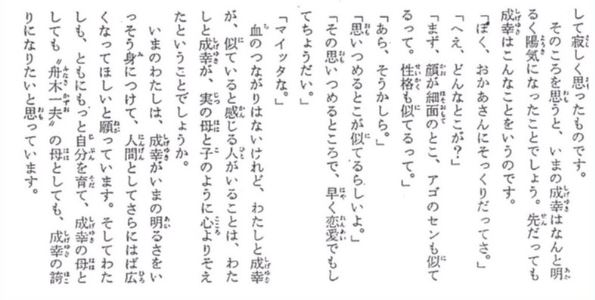 して寂しく思ったものです。
そのころを思うと、いまの成幸はなんと明
るく、陽気になったことでしょう。先だっても
成幸はこんなことをいうのです。
「ぼく、おかあさんにそっくりだってさ。」
「へえ、どんなとこが？」
「まず、顔が細面のとこ、アゴのセンも似て
るって。性格も似てるって。」
「あら、そうかしら。」
「思いつめるとこが似てるらしいよ。」
「その思いつめるところで、早く恋愛でもし
てちょうだい。」
「マイッタな。」
血のつながりはないけれど、わたしと成幸
が、似ていると感じる人がいることは、わた
しと成幸が、実の母と子のように心よりそえ
たということでしょうか。
いまのわたしは、成幸がいまの明るさをい
っそう身につけて、人間としてさらにはば広
くなってほしいと願っています。そしてわた
しも、ともにもっと自分を育て、成幸の母と
しても〝舟木一夫〟の母としても、成幸の誇
りになりたいと思っています。